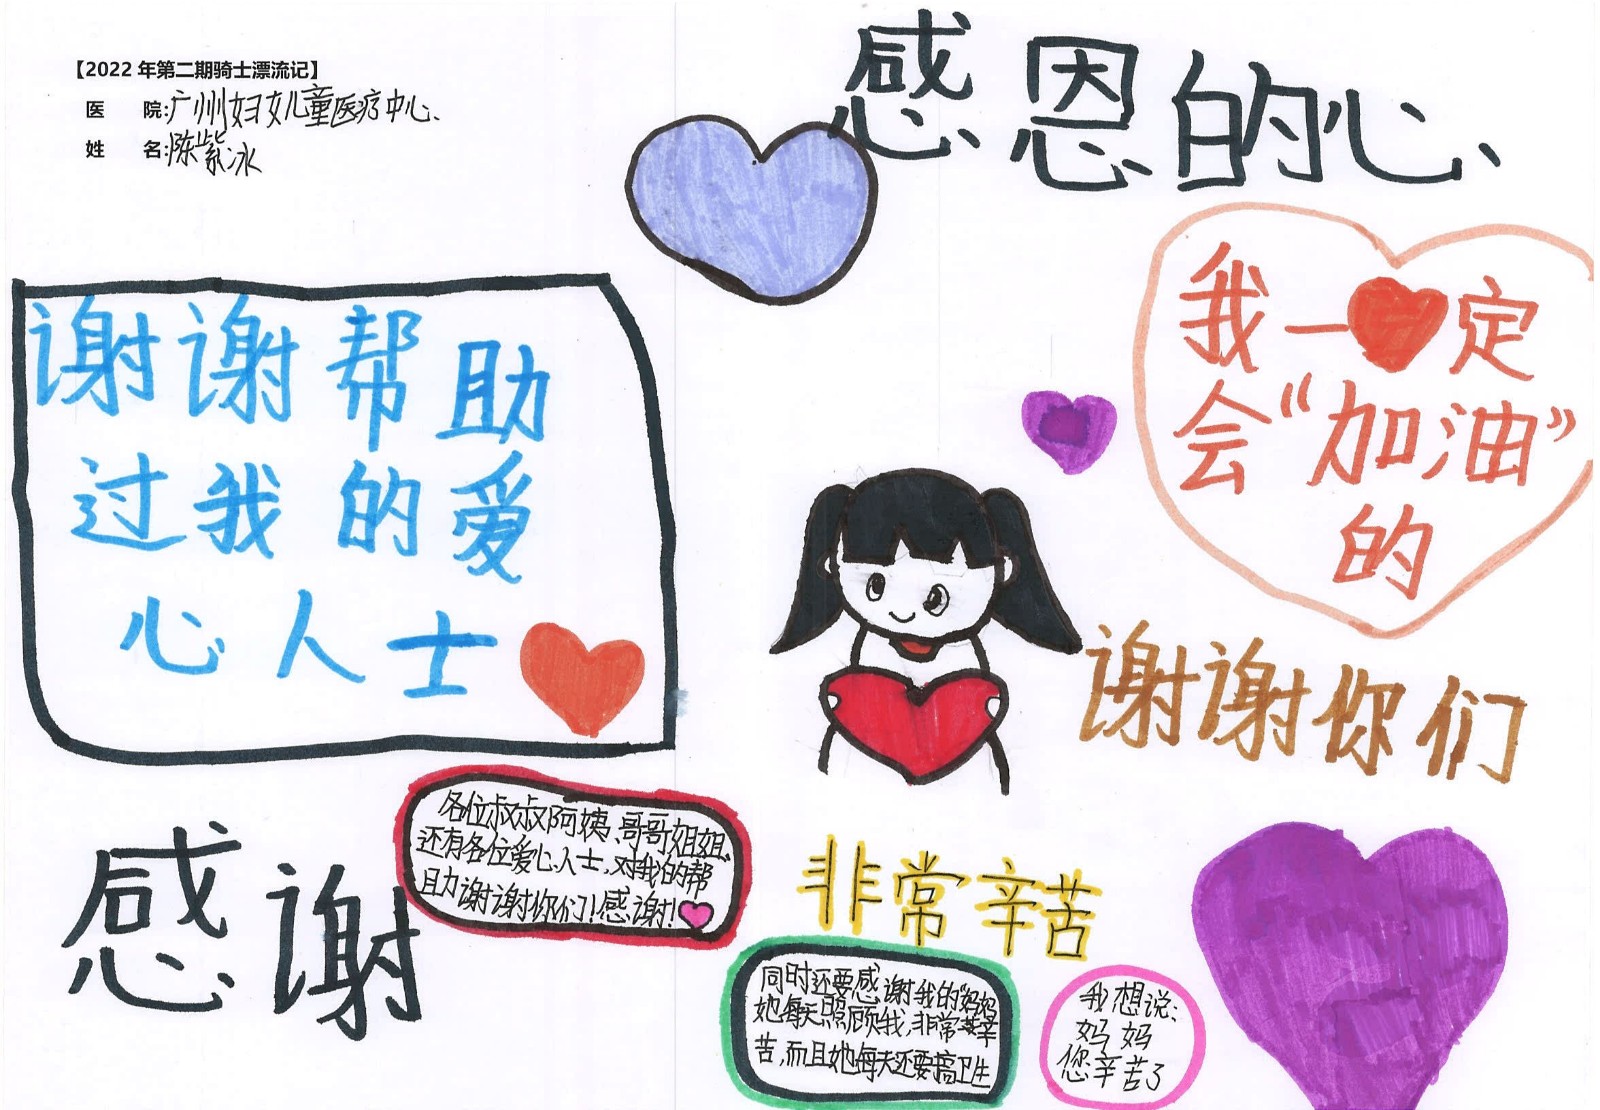 【2022 年第二期骑士漂流记】
医 院:广州妇女儿童医疗中心
姓 名:陈紫冰
感恩的心
我一定
会“加油”
的
谢谢帮助
过我的爱
心人士
谢谢你们
感谢
各位叔叔阿姨、哥哥姐姐、
还有各位爱心人士,对我的帮
助谢谢你们!感谢!
非常辛苦
同时还要感谢我的“妈妈
她每天照顾我,非常辛
苦,而且她每天还要搞卫生
我想说:
妈妈
您辛苦了